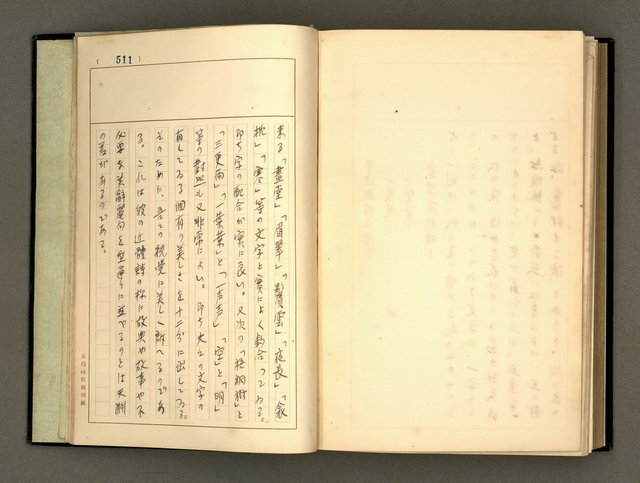 (511)
来る「畫堂」「眉翠」「鬢雲」「夜長」「衾
枕」「寒」等の文字と實によく釣合つてゐる。
即ち字の配合が實に良い。又次の「梧桐樹」と
「三更雨」「一葉葉」と「一声声」「空」と「明」
等の對照も又非常によい。即ち夫々の文字の
有してゐる個有の美しさを十二分に出してゐる。
そのために、吾々の視覺に美しく訴へるのであ
る。これは彼の近體詩の様に故典や故事や不
必要な美辭麗句を型通りに並べるのとは天淵
の差があるのである。
原稿用紙